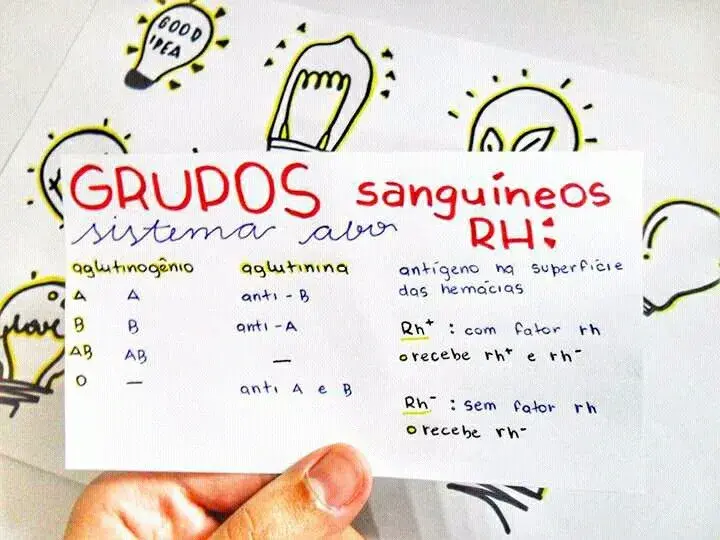 GOOD
IDEA
love
GRUPOS sanguíneos
sistema abo
aglutinogênio aglutinina
A A anti - B
B B anti - A
AB AB —
O — anti A e B
RH:
antígeno na superfície
das hemácias
Rh⁺ : com fator rh
o recebe rh⁺ e rh⁻
Rh⁻ : sem fator rh
o recebe rh⁻